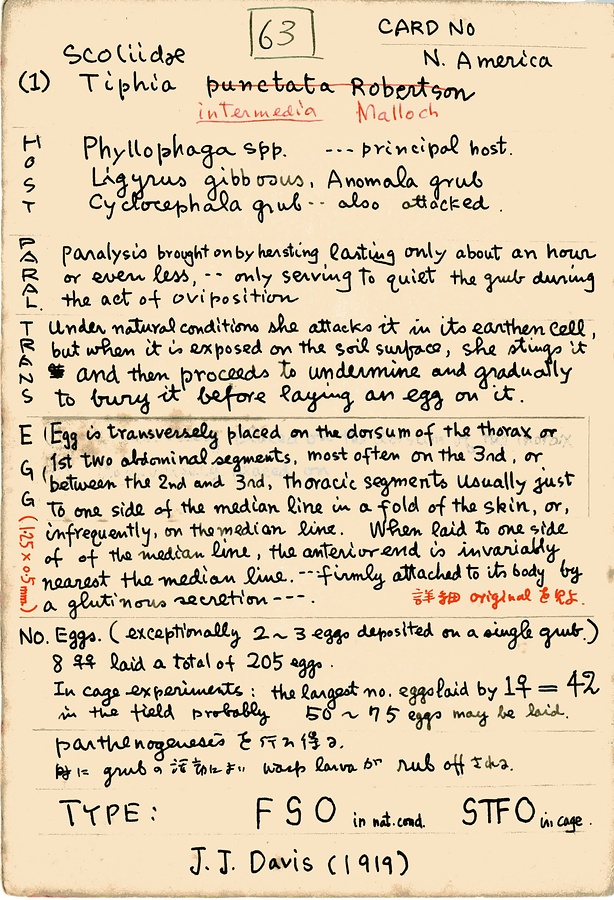 63
CARD NO
Scoliidae
N. America
(1) Tiphia punctata Robertson
intermedia Malloch
HOST
Phyllophaga spp. --- principal host.
Ligyrus gibbosus, Anomala grub
Cyclocephala grub -- also attacked.
PARAL.
Paralysis brought on by her sting lasting only about an hour
or even less, -- only serving to quiet the grub during
the act of oviposition
TRANS
Under natural conditions she attacks it in its earthen cell,
but when it is exposed on the soil surface, she stings it
and then proceeds to undermine and gradually
to bury it before laying an egg on it.
EGG (1.25 x 0.5 mm.)
(Egg is transversely placed on the dorsum of the thorax or
1st two abdominal segments, most often on the 3rd, or
(between the 2nd and 3rd, thoracic segments usually just
to one side of the median line in a fold of the skin, or,
infrequently, on the median line. When laid to one side
of of the median line, the anterior end is invariably
nearest the median line. --- firmly attached to its body by
a glutinous secretion ---.
詳細 original を見よ.
No. Eggs. (exceptionally 2~3 eggs deposited on a single grub.)
8 ♀♀ laid a total of 205 eggs.
In cage experiments: the largest no. eggs laid by 1♀ = 42
in the field probably 50 ~ 75 eggs may be laid.
parthenogenesis を行い得る.
時に grub の活動により wasp larva が rub off される.
TYPE: FSO in nat. cond. STFO in cage.
J. J. Davis (1919)